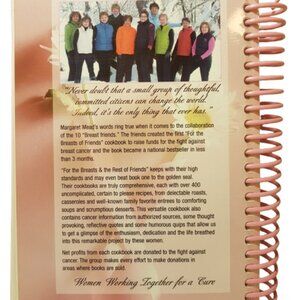 "Never doubt that a small group of thoughtful,
committed citizens can change the world.
Indeed, it's the only thing that ever has."
Margaret Mead's words ring true when it comes to the collaboration
of the 10 "Breast friends." The friends created the first "For the
Breasts of Friends" cookbook to raise funds for the fight against
breast cancer and the book became a national bestseller in less
than 3 months.
"For the Breasts & the Rest of Friends" keeps with their high
standards and may even beat book one to the golden seal.
Their cookbooks are truly comprehensive, each with over 400
uncomplicated, certain to please recipes, from delectable roasts,
casseroles and well-known family favorite entrees to comforting
soups and scrumptious desserts. This versatile cookbook also
contains cancer information from authorized sources, some thought
provoking, reflective quotes and some humorous quips that allow us
to get a glimpse of the enthusiasm, dedication and the life breathed
into this remarkable project by these women.
Net profits from each cookbook are donated to the fight against
cancer. The group makes every effort to make donations in
areas where books are sold.
Women Working Together for a Cure